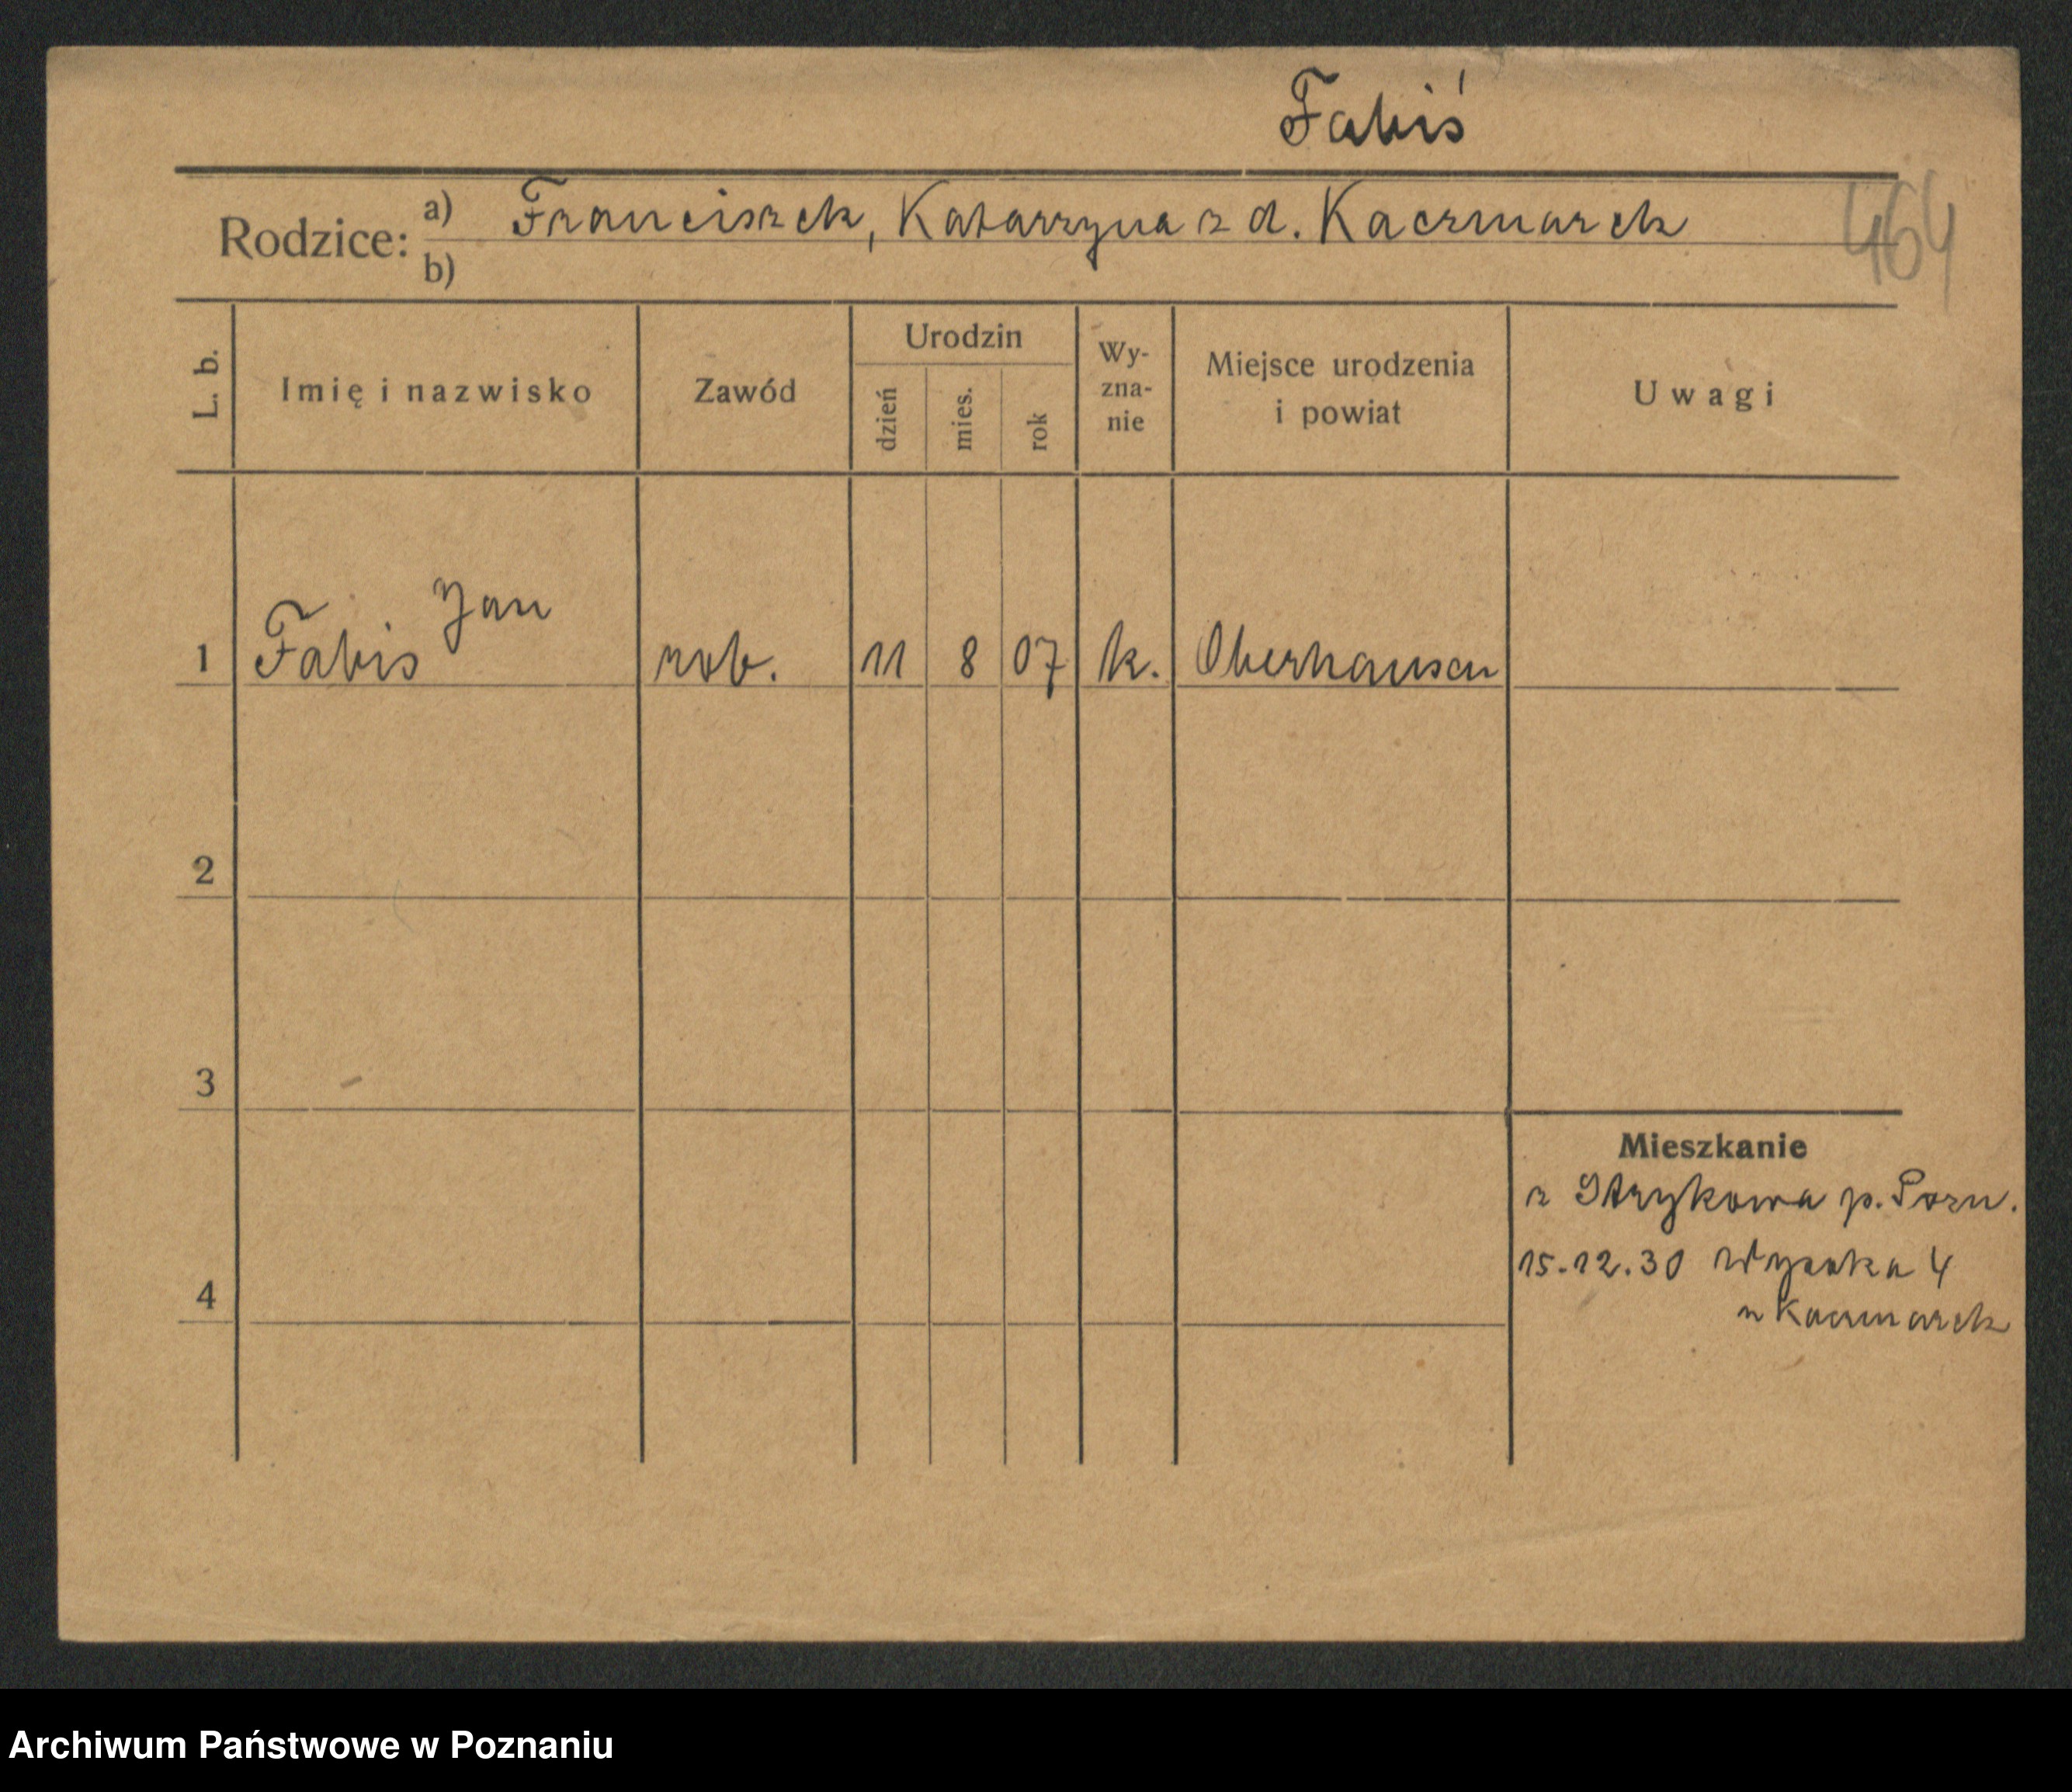 Fabiś
464
Rodzice: a) Franciszek, Katarzyna z d. Kaczmarek
b)
L. b. Imię i nazwisko Zawód Urodzin dzień mies. rok Wy-zna-nie Miejsce urodzenia i powiat Uwagi
1 Fabis Jan rob. 11 8 07 k. Oberhausen
2
3
Mieszkanie
z Strykowa p. Pozn.
15.12.30 Wysoka 4
4
u Kaczmarek
Archiwum Państwowe w Poznaniu